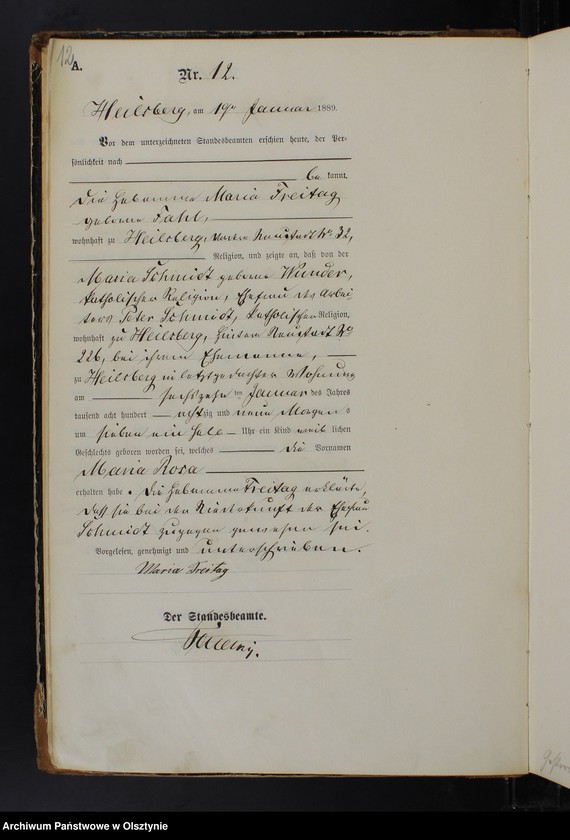 12
A.
Nr. 12.
Heilsberg, am 19ten Januar 1889.
Vor dem unterzeichneten Standesbeamten erschien heute, der Per-
sönlichkeit nach
be kannt,
die Hebamme Maria Freitag
geborne Fahl,
wohnhaft zu Heilsberg, Neustadt No 32,
Religion, und zeigte an, daß von der
Maria Schmidt geborne Wunder,
katholischer Religion, Ehefrau des Arbei-
ters Peter Schmidt, katholischer Religion,
wohnhaft zu Heilsberg, Hintere Neustadt No
226, bei ihrem Ehemanne,
zu Heilsberg in letztgedachter Wohnung
am sechszehn ten Januar des Jahres
tausend acht hundert achtzig und neun Morgens
um sieben ein halb Uhr ein Kind weib lichen
Geschlechts geboren worden sei, welches die Vornamen
Maria Rosa
erhalten habe. Die Hebamme Freitag erklärte,
daß sie bei der Niederkunft der Ehefrau
Schmidt zugegen gewesen sei.
Vorgelesen, genehmigt und unterschrieben.
Maria Freitag
Der Standesbeamte.
Archiwum Państwowe w Olsztynie